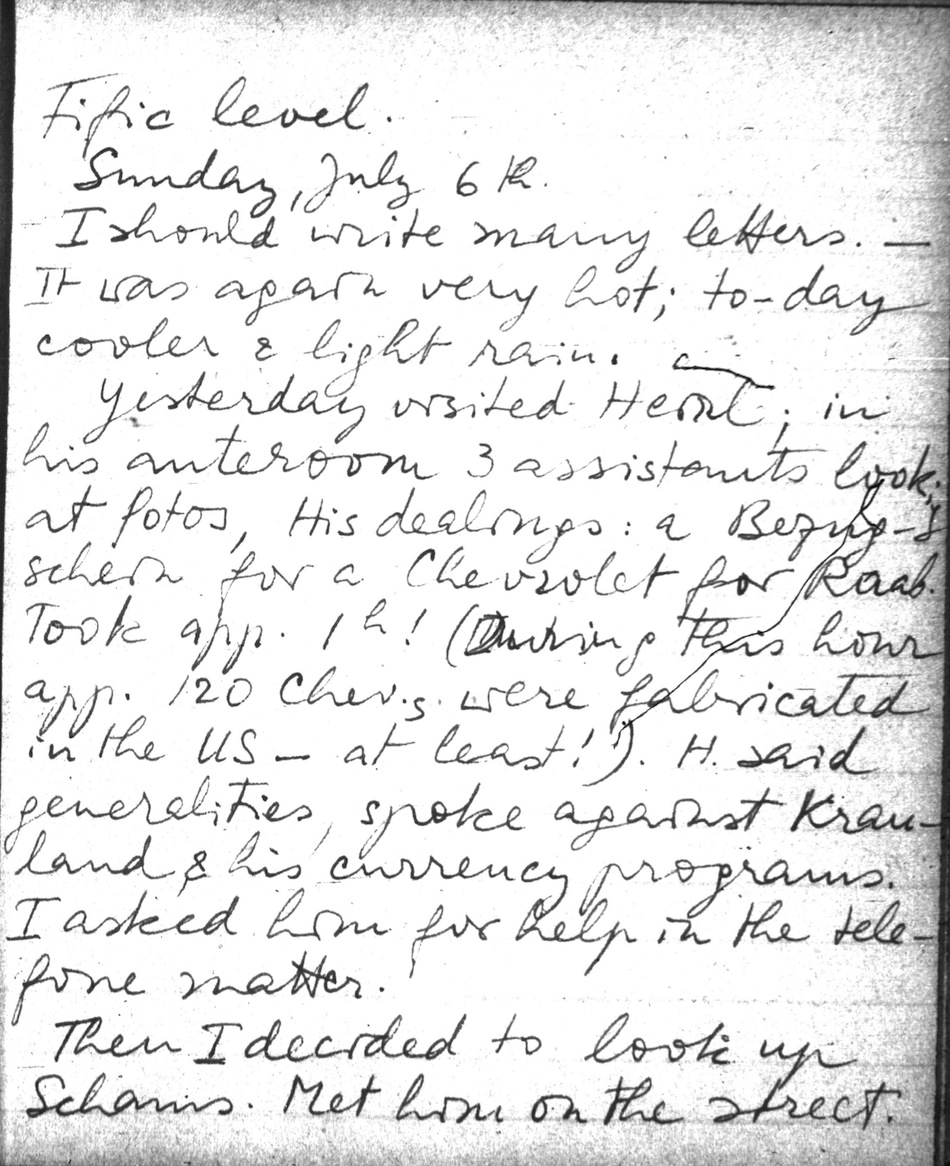 Tific level.
Sunday, July 6th.
I should write many letters. —
It was again very hot; to-day
cooler & light rain.
Yesterday visited Heinl; in
his anteroom 3 assistants look.
at fotos, His dealings: a Bezug-s
schein for a Chevrolet for Raab.
Took app. 1h! (During this hour
app. 120 Chev.s. were fabricated
in the US — at least!!). H. said
generalities, spoke against Krau-
land & his currency programs.
I asked him for help in the tele-
fone matter.
Then I decided to look up
Schams. Met him on the street.